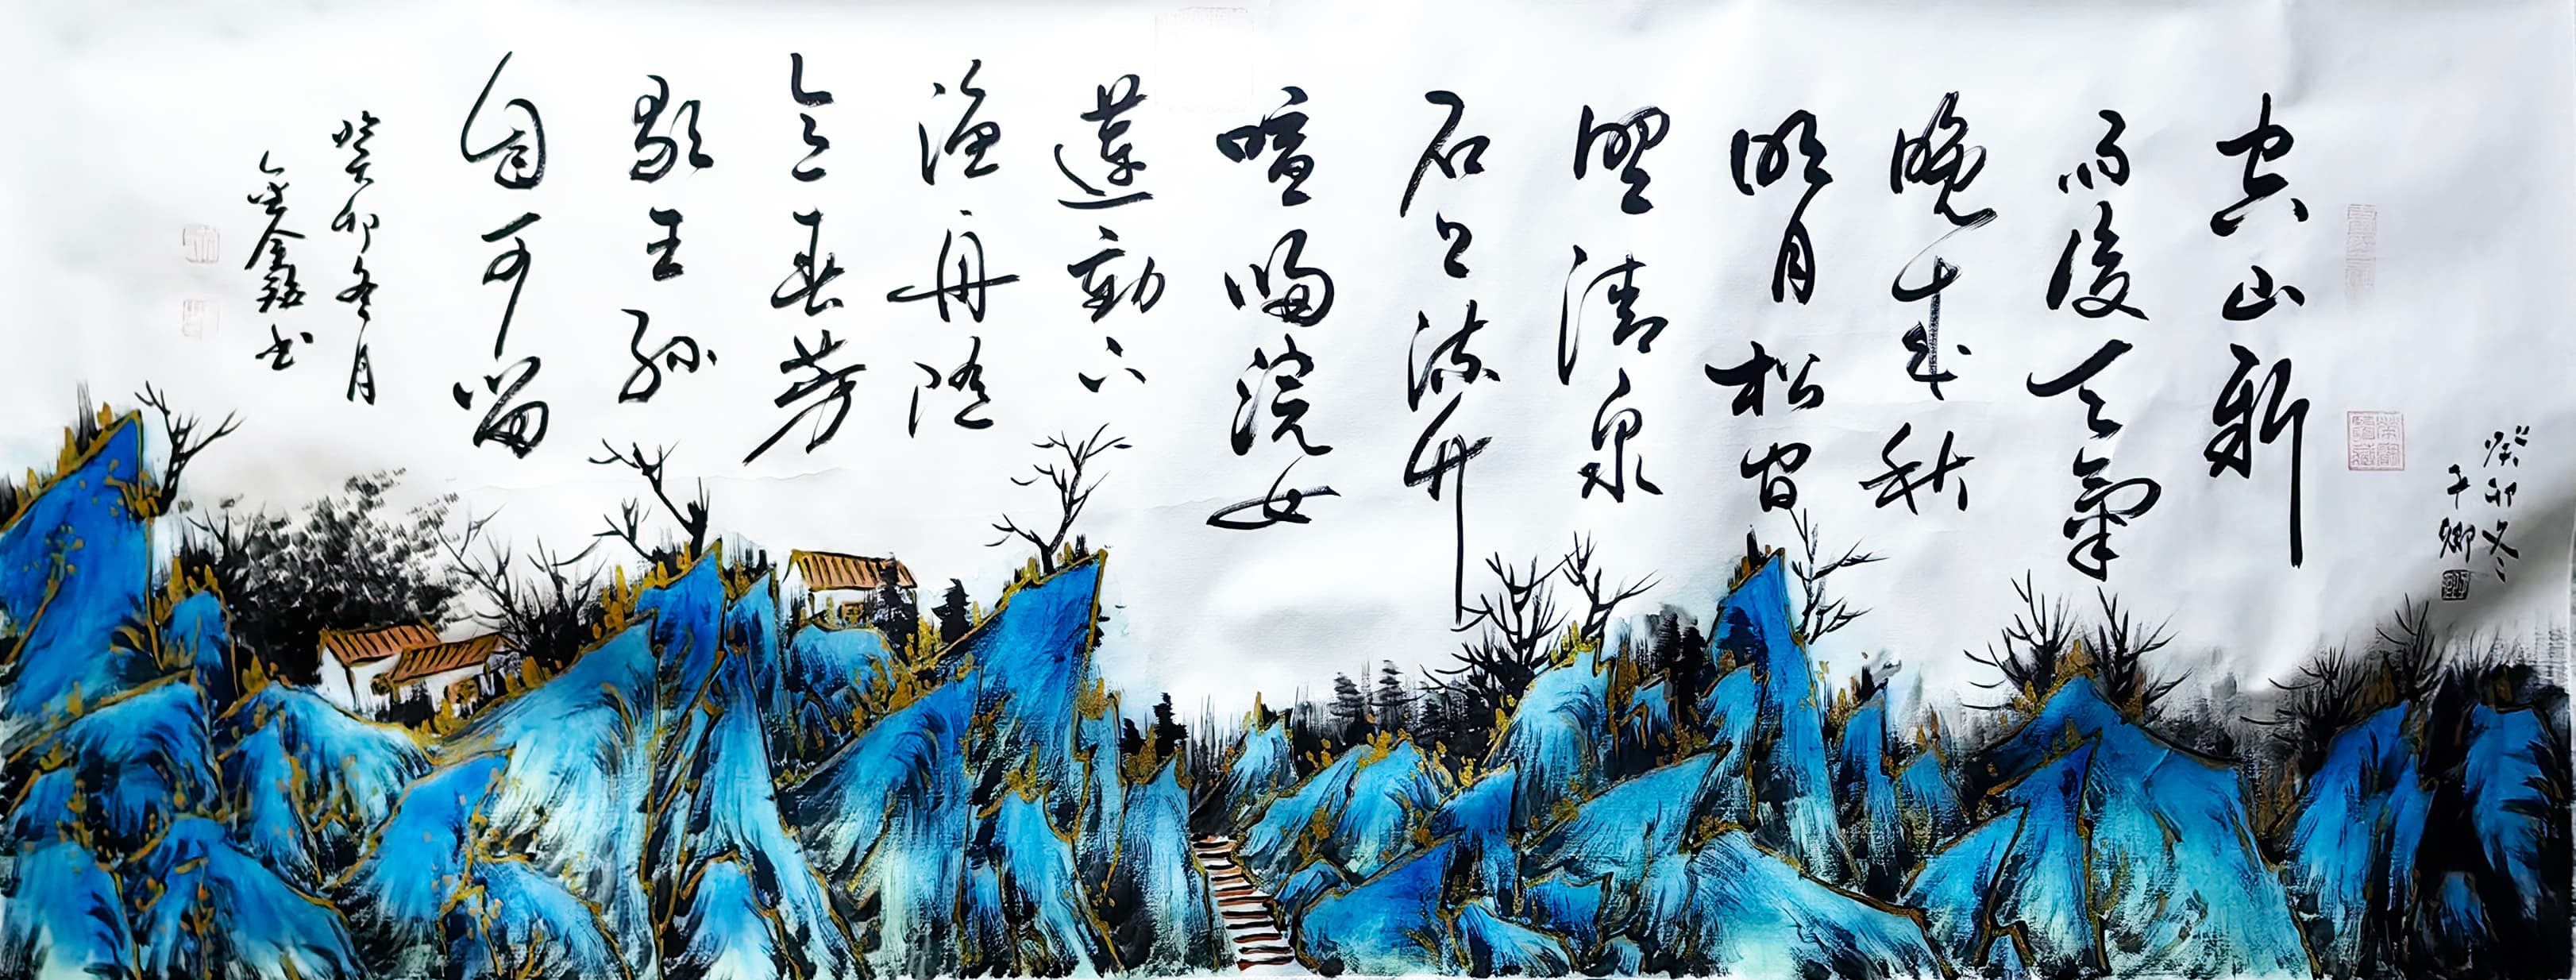 癸卯冬
空山新
雨後天氣
晚来秋
明月松間
照清泉
石上流竹
喧歸浣女
蓮動下
漁舟隨
意春芳
歇王孫
自可留
癸卯冬月
鑫书